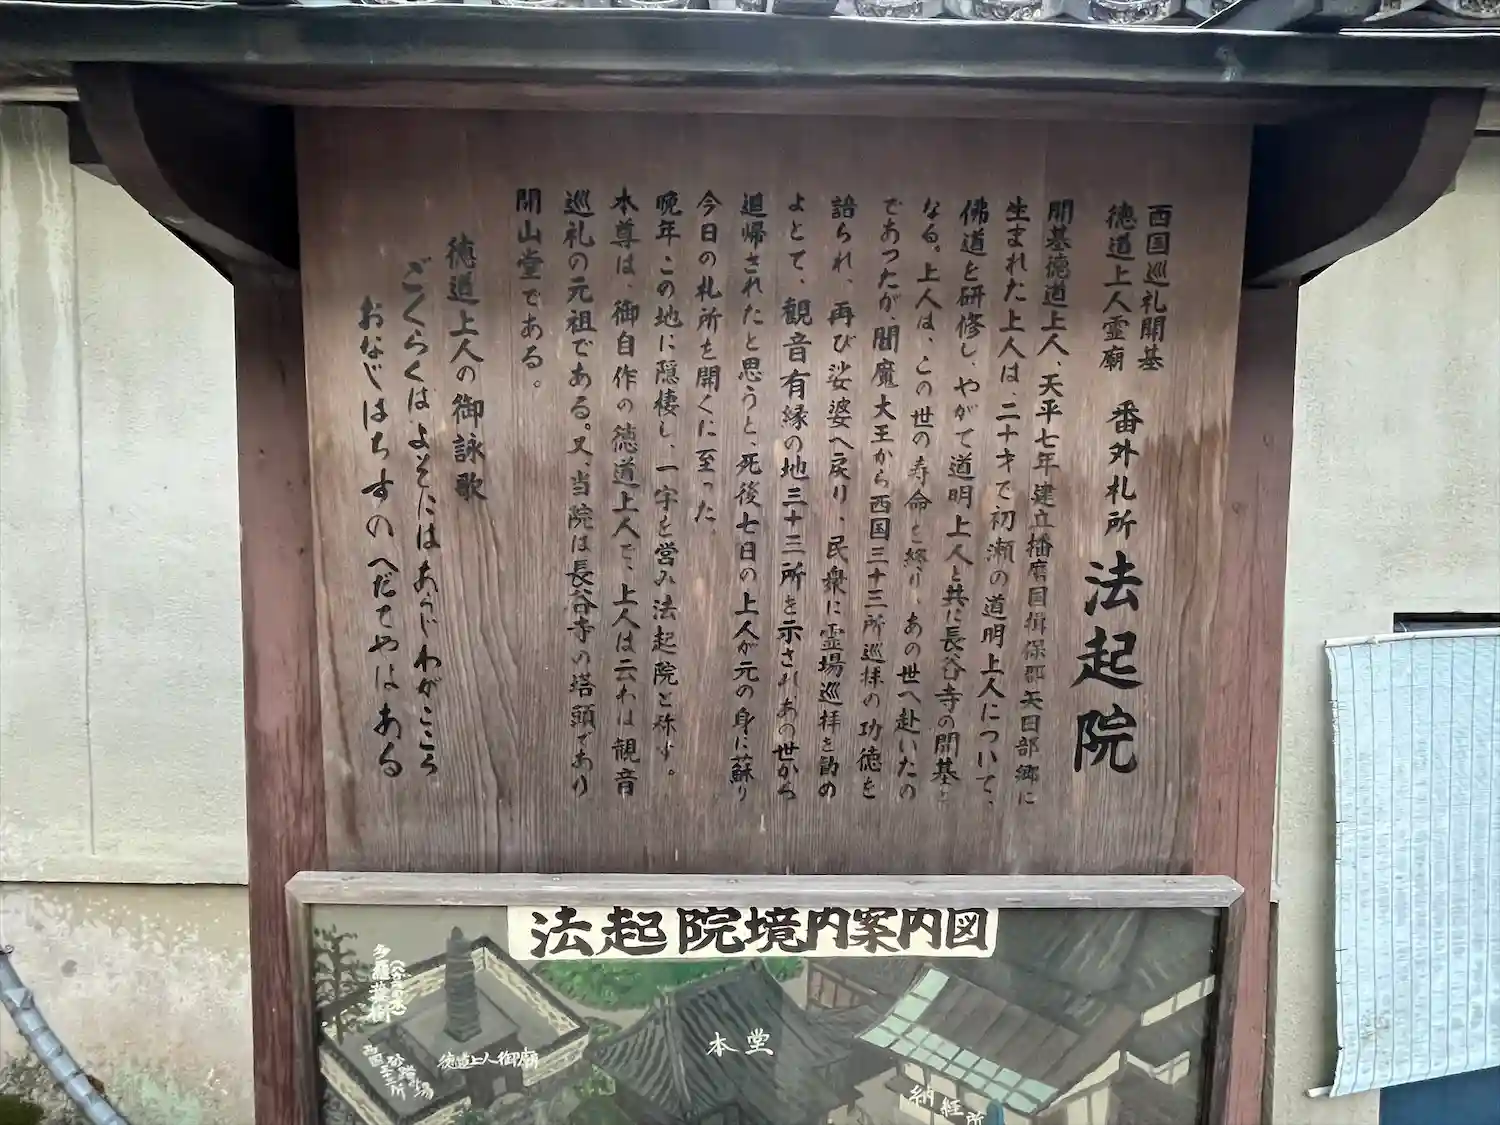 西国巡礼開基
徳道上人霊廟
番外札所 法起院
開基徳道上人、天平七年建立播磨国揖保郡矢田部郷に
生まれた上人は、二十才で初瀬の道明上人について、
佛道を研修し、やがて道明上人と共に長谷寺の開基と
なる。上人は、この世の寿命を終り、あの世へ赴いたの
であつたが、閻魔大王から西国三十三所巡拝の功徳を
語られ、再び娑婆へ戻り、民衆に霊場巡拝を勧め
よとて、観音有縁の地三十三所を示されあの世から
追帰されたと思うと、死後七日の上人が元の身に蘇り
今日の札所を開くに至った。
晩年、この地に隠棲し、一宇を営み法起院と称す。
本尊は、御自作の徳道上人で、上人は云わば観音
巡礼の元祖である。又、当院は長谷寺の塔頭であり
開山堂である。
徳道上人の御詠歌
ごくらくは よそにはあらじ わがこころ
おなじはちすの へだてやはある
法起院境内案内図
多羅葉樹
徳道上人御廟
西国三十三所
本堂
納経所